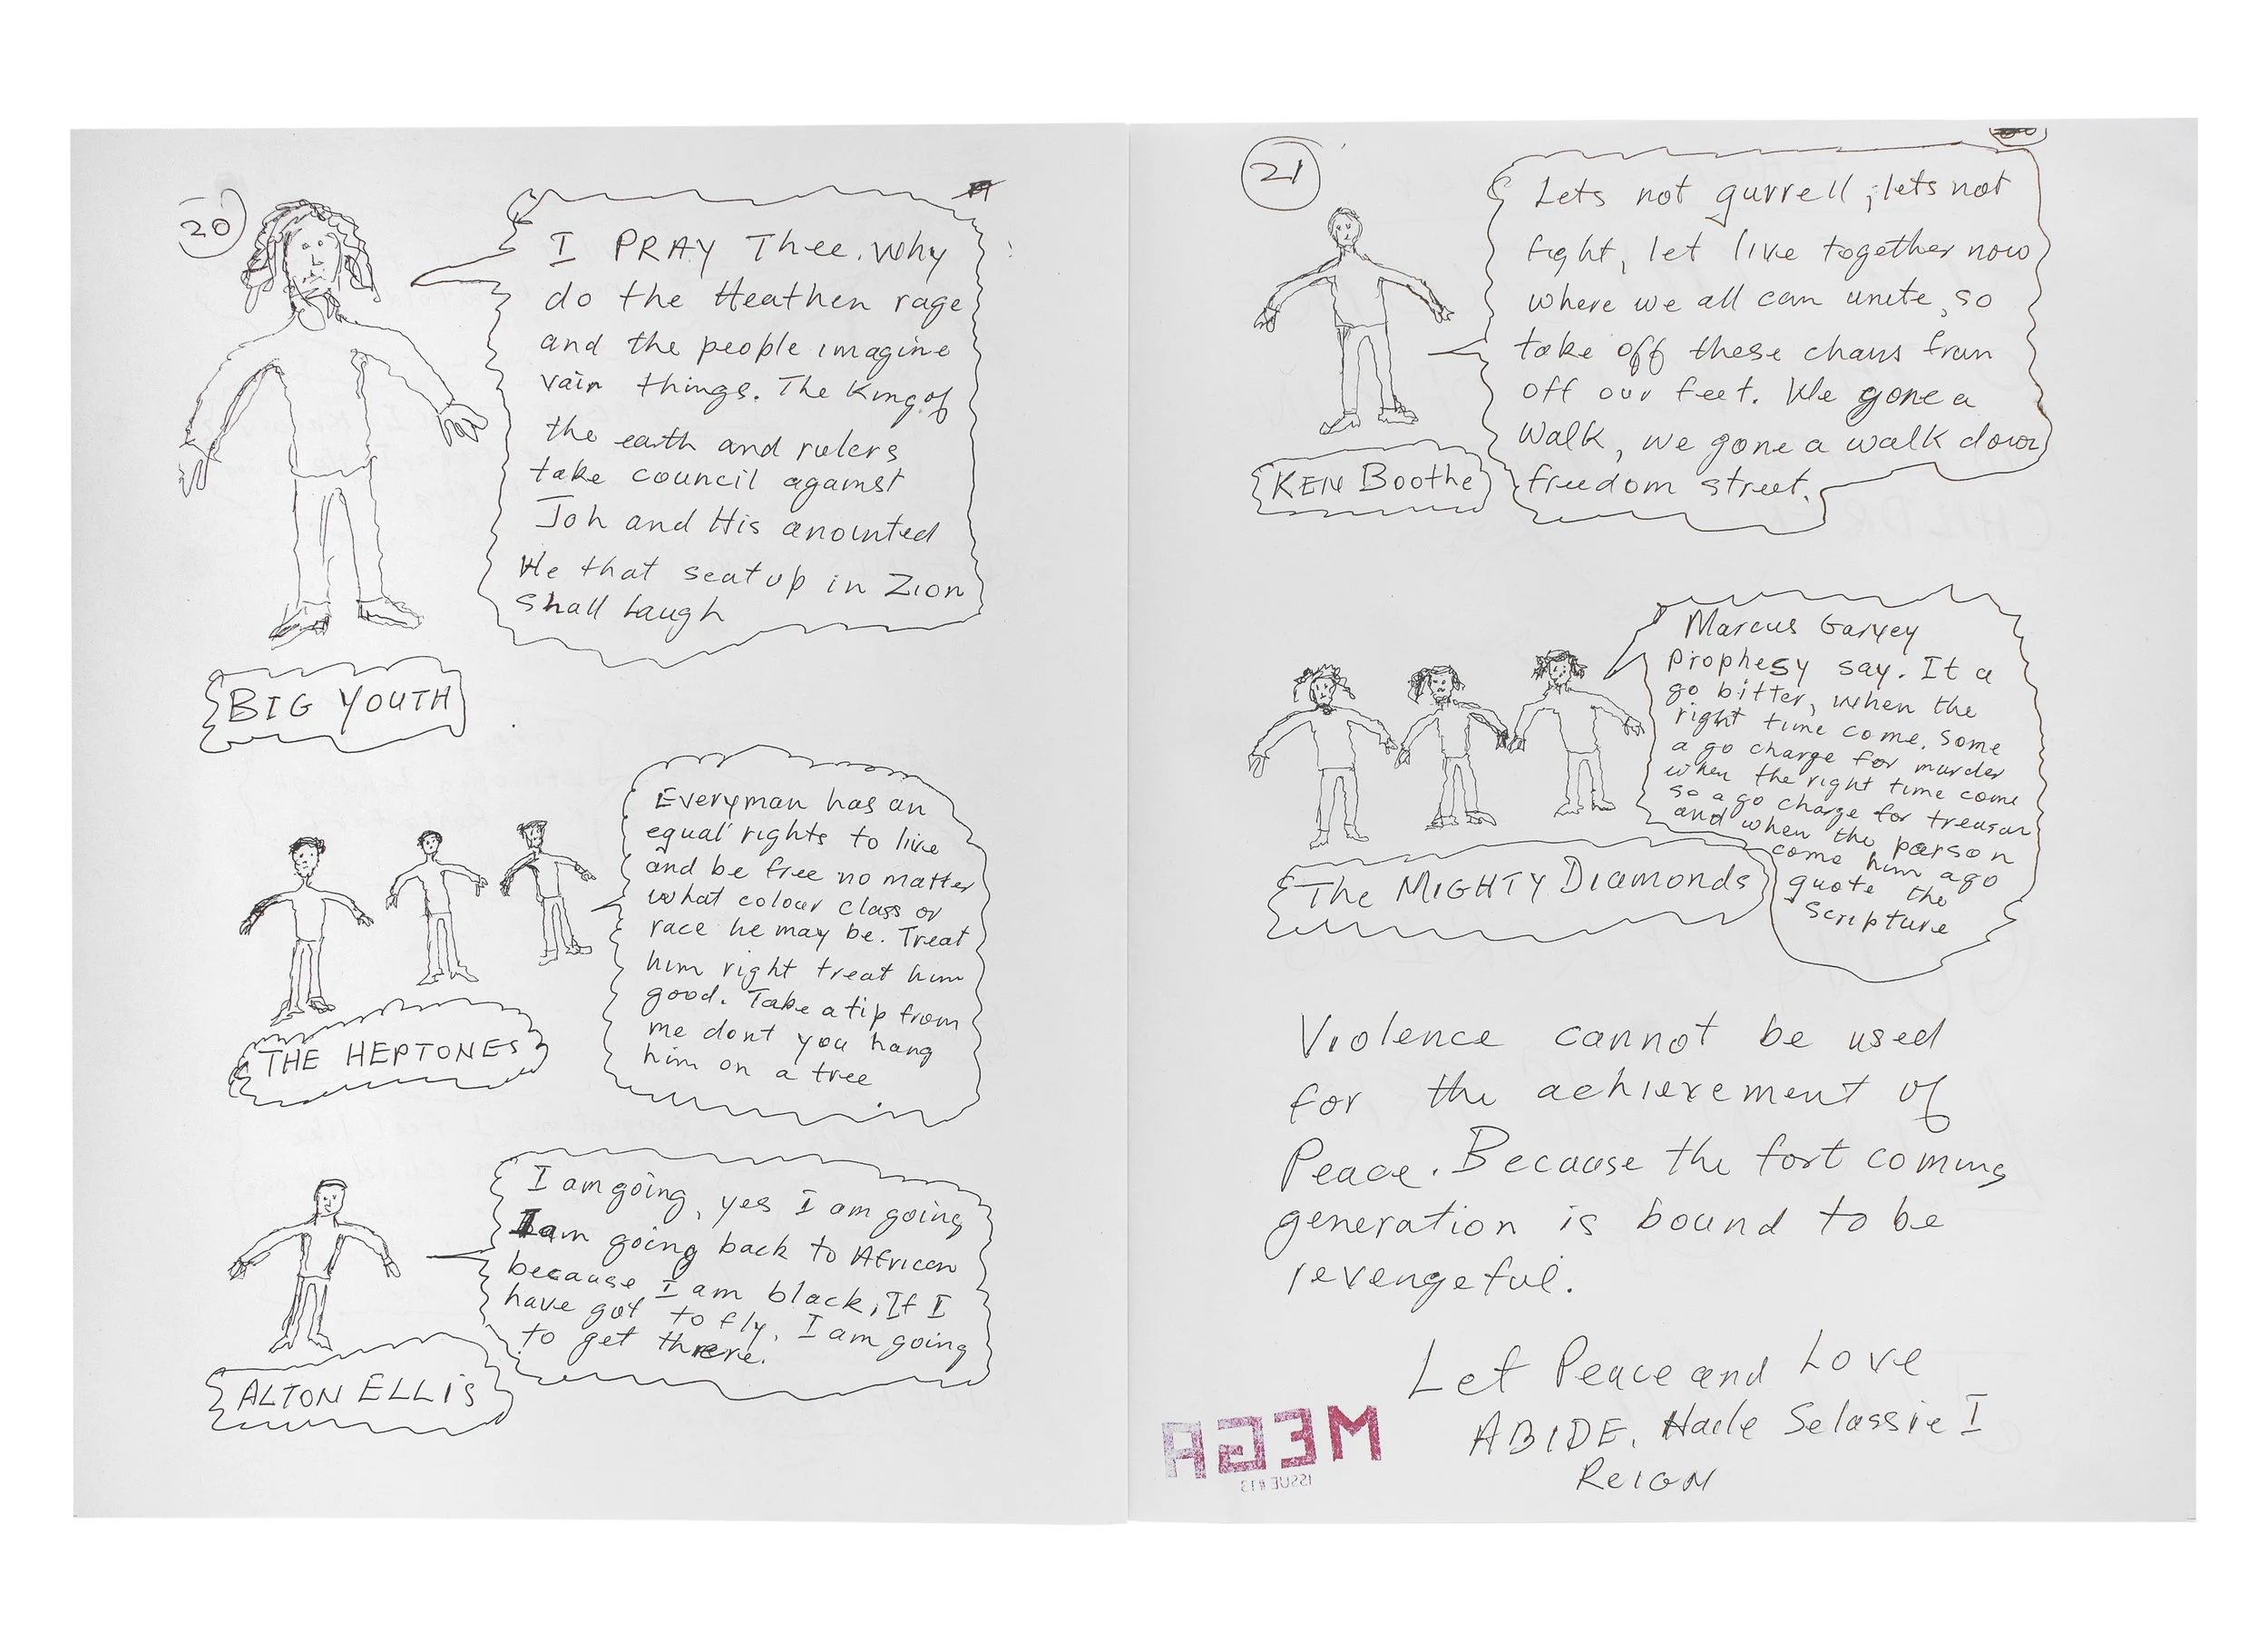 20
I PRAY Thee. Why
do the Heathen rage
and the people imagine
vain things. The King of
the earth and rulers
take council against
Joh and His anointed
He that seat up in Zion
shall laugh
BIG YOUTH
Everyman has an
equal rights to live
and be free no matter
what colour class or
race he may be. Treat
him right treat him
good. Take a tip from
me dont you hang
him on a tree
THE HEPTONES
I am going, yes I am going
I am going back to African
because I am black, If I
have got to fly, I am going
to get there.
ALTON ELLIS
21
Lets not gurrell, lets not
fight, let live together now
where we all can unite, so
take off these chans from
off our feet. We gone a
walk, we gone a walk down
freedom street.
KEN Boothe
Marcus Garvey
prophesy say. It a
go bitter, when the
right time come. Some
a go charge for murder
when the right time come
so a go charge for treason
and when the parson
come him ago
quote the
Scripture
The MIGHTY Diamonds
Violence cannot be used
for the achievement of
Peace. Because the fort coming
generation is bound to be
revengeful.
Let Peace and Love
ABIDE. Haile Selassie I
REIGN
MEGA
ISSUE #13